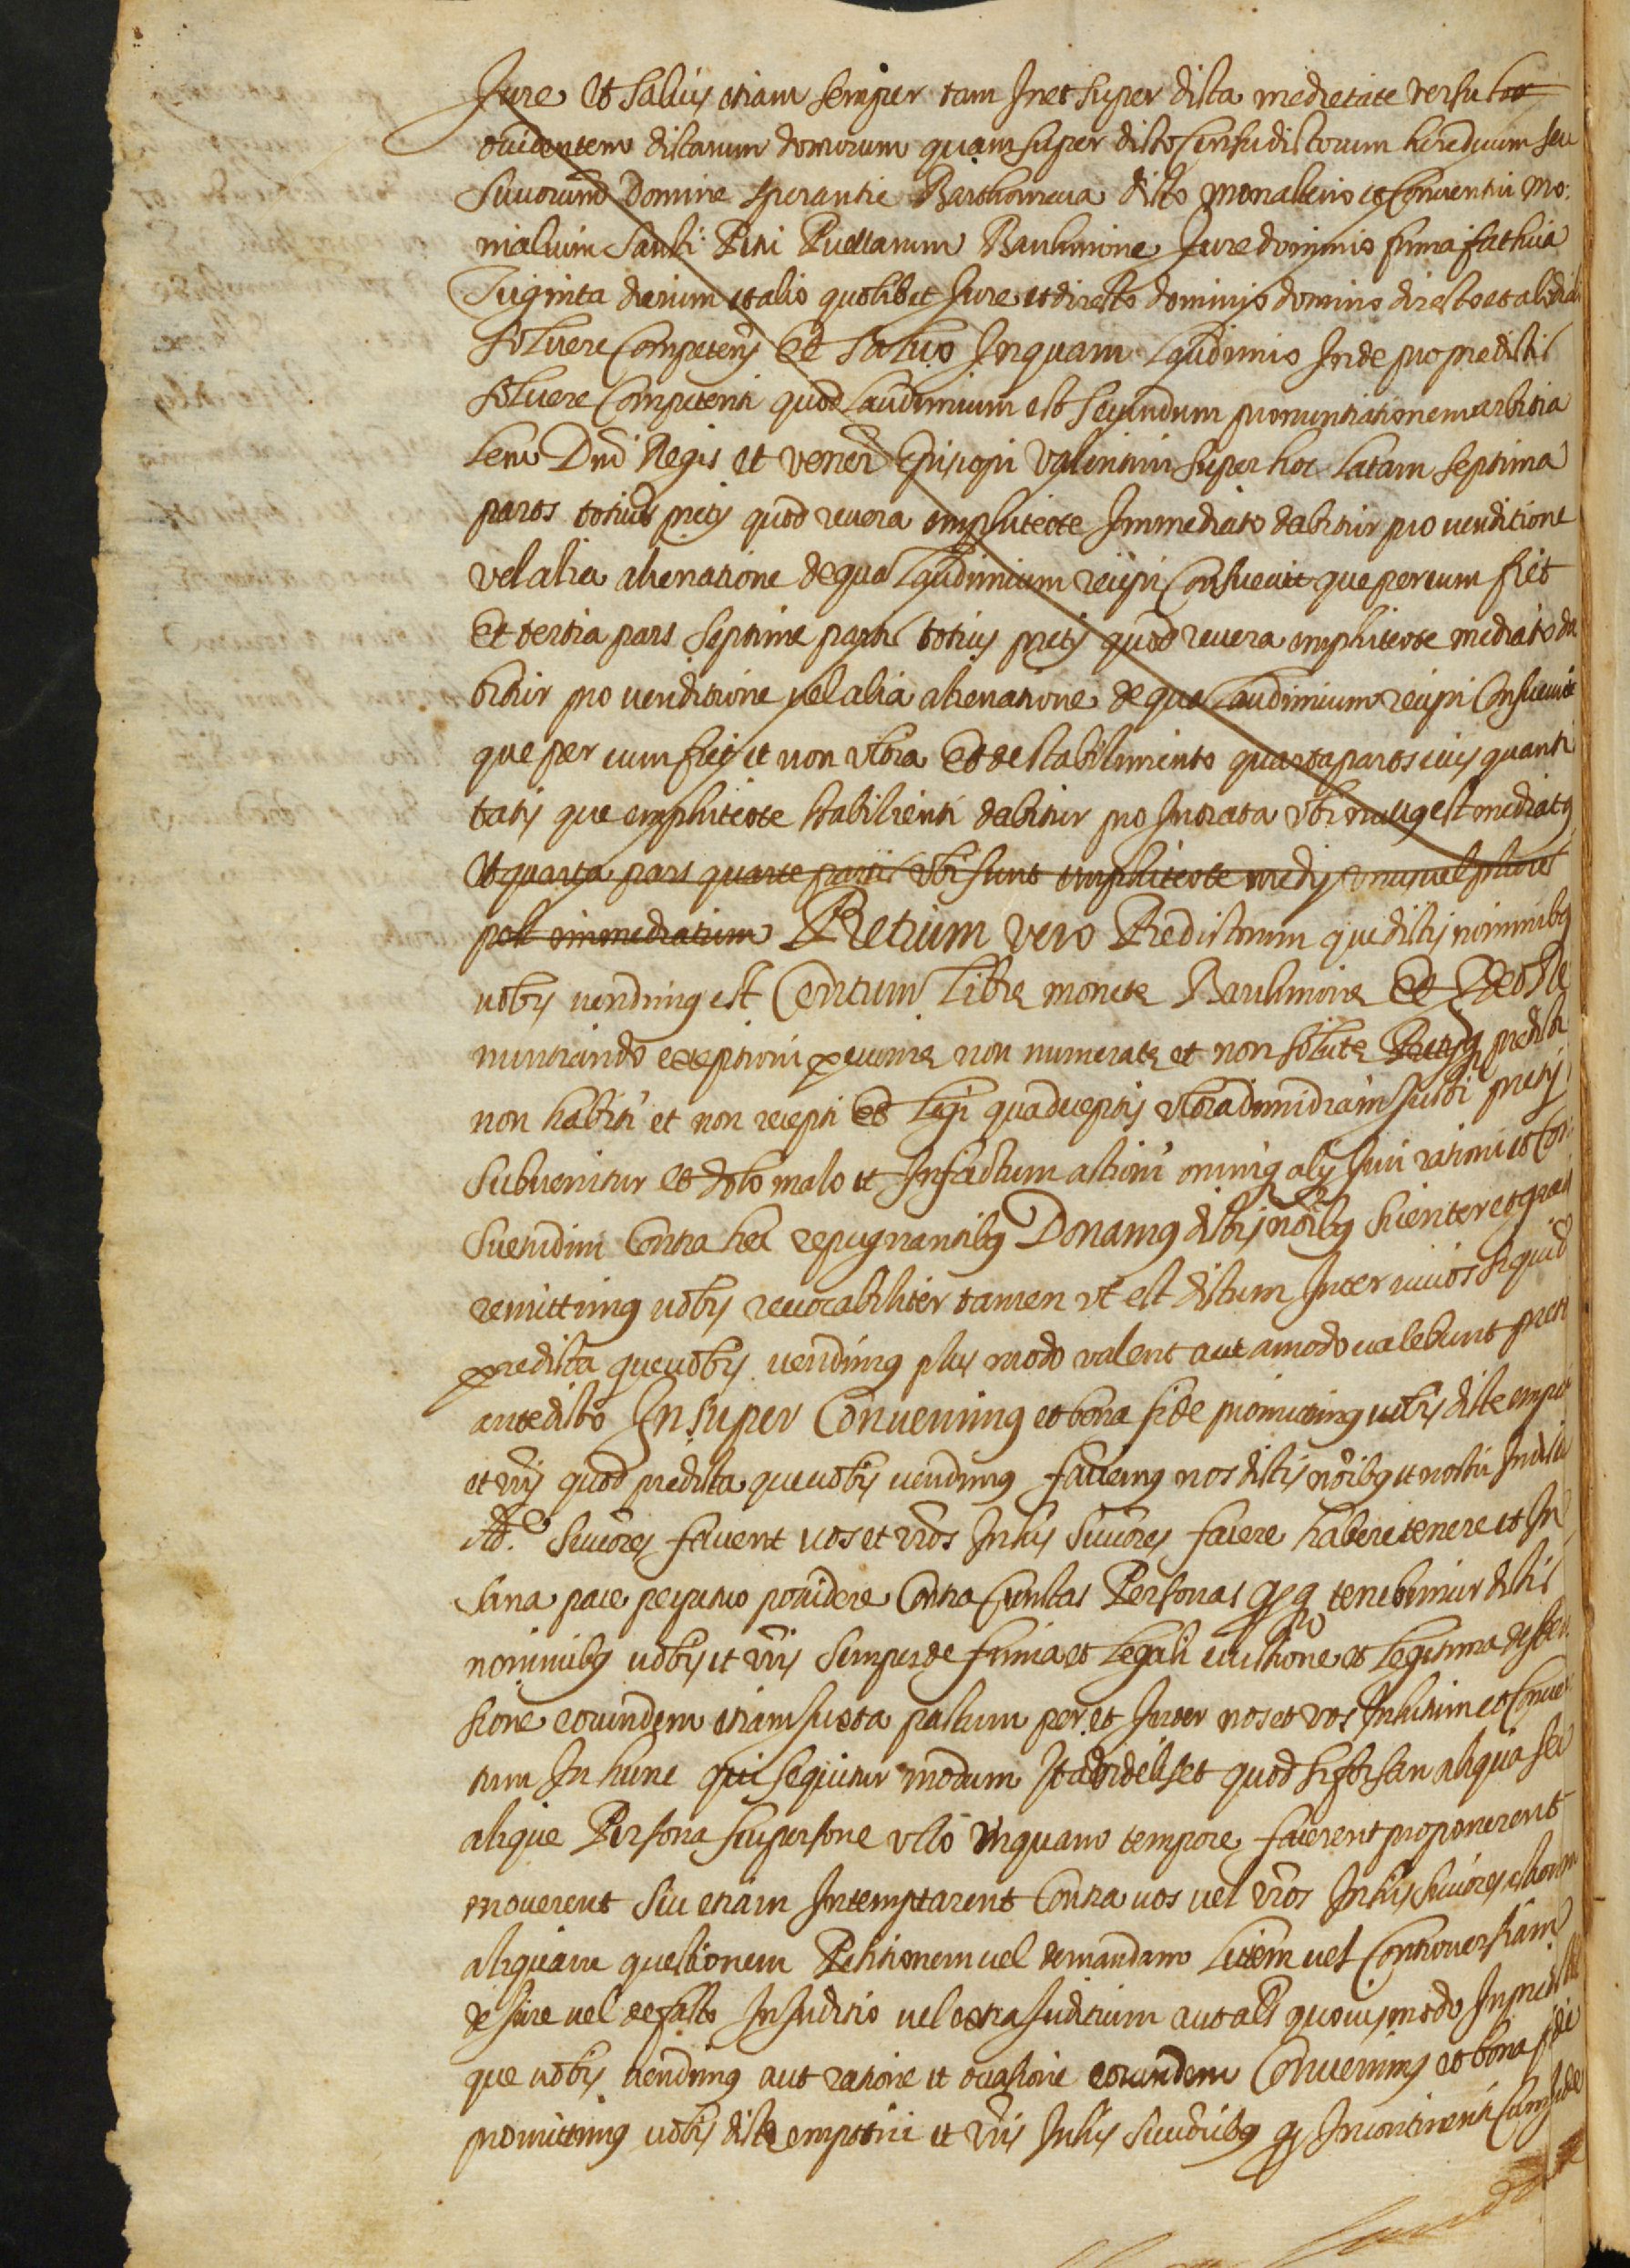 Jure et salvis etiam semper tam In et super dicta medietate versu
occidentem dictarum domorum quam super dicto Censu dictorum heredum seu
Successorum Domine Sperantie Barthomeua dicto monasterio et Conventui Mo:
nialium Sancti Petri Puellarum Barchinone Jure dominio firma fathica
Triginta dierum et alio quolibet Jure et directo dominio domino directo et alodiali
solvere Competenti Et salvo Inquam Laudimio Inde pro predictis
solvere Competenti quod Laudimium est secundum pronuntiationem arbitra
lem Dñi Regis et vener. Episcopi Valentini super hoc latam septima
pars totius pretij quod revera emphiteote Immediato dabitur pro venditione
vel alia alienatione de qua Laudimium recipi Consuevit que per eum fiet
Et tertia pars septime partis totius pretij quod revera emphiteote mediato da
bitur pro venditione vel alia alienatione de qua Laudimium recipi Consuevit
que per eum fiet et non ultra Et de stabilimento quarta pars eius quanti
tatis que emphiteote stabilienti dabitur pro Intrata ubi nullus est mediatus
Et quarta pars quarte partis ubi sunt emphiteote medij unus vel plures
post immediatum Pretium vero Predictorum que dictis nominibus
vobis vendimus est Centum Libre monete Barchinone Et Ideo Re
nuntiando exceptioni pecunie non numerate et non solute Pretijque predicti
non habiti et non recepti Et Legi qua deceptis ultra dimidiam Justi pretij
subvenitur et dolo malo et Infactum actioni omnique alij Juri rationi et Con
suetudini Contra hec repugnantibus Donamus dictis nõibus scienter et gratis
remittimus vobis revocabiliter tamen ut est dictum Inter vivos siquid
predicta que vobis vendimus plus modo valent aut amodo valebunt pretio
antedicto Insuper Convenimus et bona fide promittimus vobis dicte empt
et vr̃is quod predicta que vobis vendimus faciemus nos dictis nõibus et nostri In dicta
Ad.e Successores facient vos et vr̃os In his Successores facere habere tenere et In
sana pace perpetuo possidere Contra Cunctas Personas tenebimur dictis
nominibus vobis et vr̃is semper de firma et Legali evictione et Legitima defen
sione eorundem etiam Juxta pactum per et Inter nos et vos Initum et Conven
tum In hunc qui sequitur modum Ita videlicet quod si forsan aliqua seu
alique Persona seu persone ullo unquam tempore facerent proponerent
moverent sive etiam Intemptarent Contra vos vel vr̃os In his Successores
aliquam questionem Petitionem vel demandam Litem vel Controversiam
de Jure vel de facto In Juditio vel extra Juditium aut als quovismodo In predictis
que vobis vendimus aut ratione et occasione eorundem Convenimus et bona fide
promittimus vobis dicte emptrici et vr̃is In his Successoribus Incontinenti